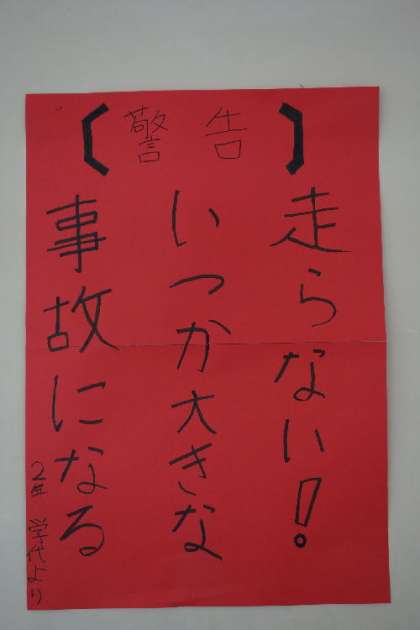 【警告】
走らない!
いつか大きな
事故になる
2年 学代より